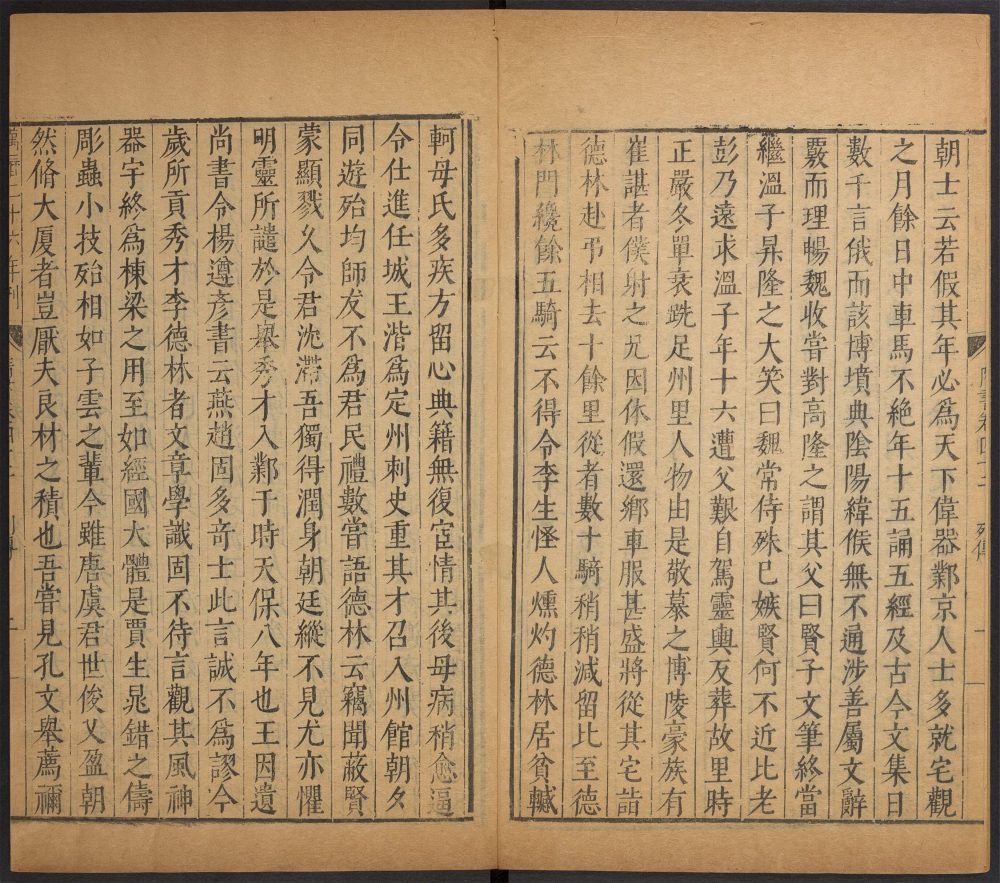 隋書卷四十二 列傳 一
朝士云若假其年必爲天下偉器鄴京人士多就宅觀
之月餘日中車馬不絕年十五誦五經及古今文集日
數千言俄而該博墳典陰陽緯候無不通涉善屬文辭
覈而理暢魏收嘗對高隆之謂其父曰賢子文筆終當
繼溫子昇隆之大笑曰魏常侍殊已嫉賢何不近比老
彭乃遠求溫子年十六遭父艱自駕靈輿反葬故里時
正嚴冬單衰跣足州里人物由是敬慕之博陵豪族有
崔諶者僕射之兄因休假還鄉車服甚盛將從其宅詣
德林赴弔相去十餘里從者數十騎稍稍減留比至德
林門纔餘五騎云不得令李生怪人燻灼德林居貧轗
軻母氏多疾方留心典籍無復宦情其後母病稍愈逼
令仕進任城王湝爲定州刺史重其才召入州館朝夕
同遊殆均師友不爲君民禮數嘗語德林云竊聞蔽賢
蒙顯戮久令君沈滯吾獨得潤身朝廷縱不見尤亦懼
明靈所譴於是舉秀才入鄴于時天保八年也王因遺
尚書令楊遵彥書云燕趙固多奇士此言誠不爲謬今
歲所貢秀才李德林者文章學識固不待言觀其風神
器宇終爲棟梁之用至如經國大體是賈生晁錯之儔
彫蟲小技殆相如子雲之輩今雖唐虞君世俊乂盈朝
然脩大厦者豈厭夫良材之積也吾嘗見孔文舉薦禰
萬曆二十六年刊